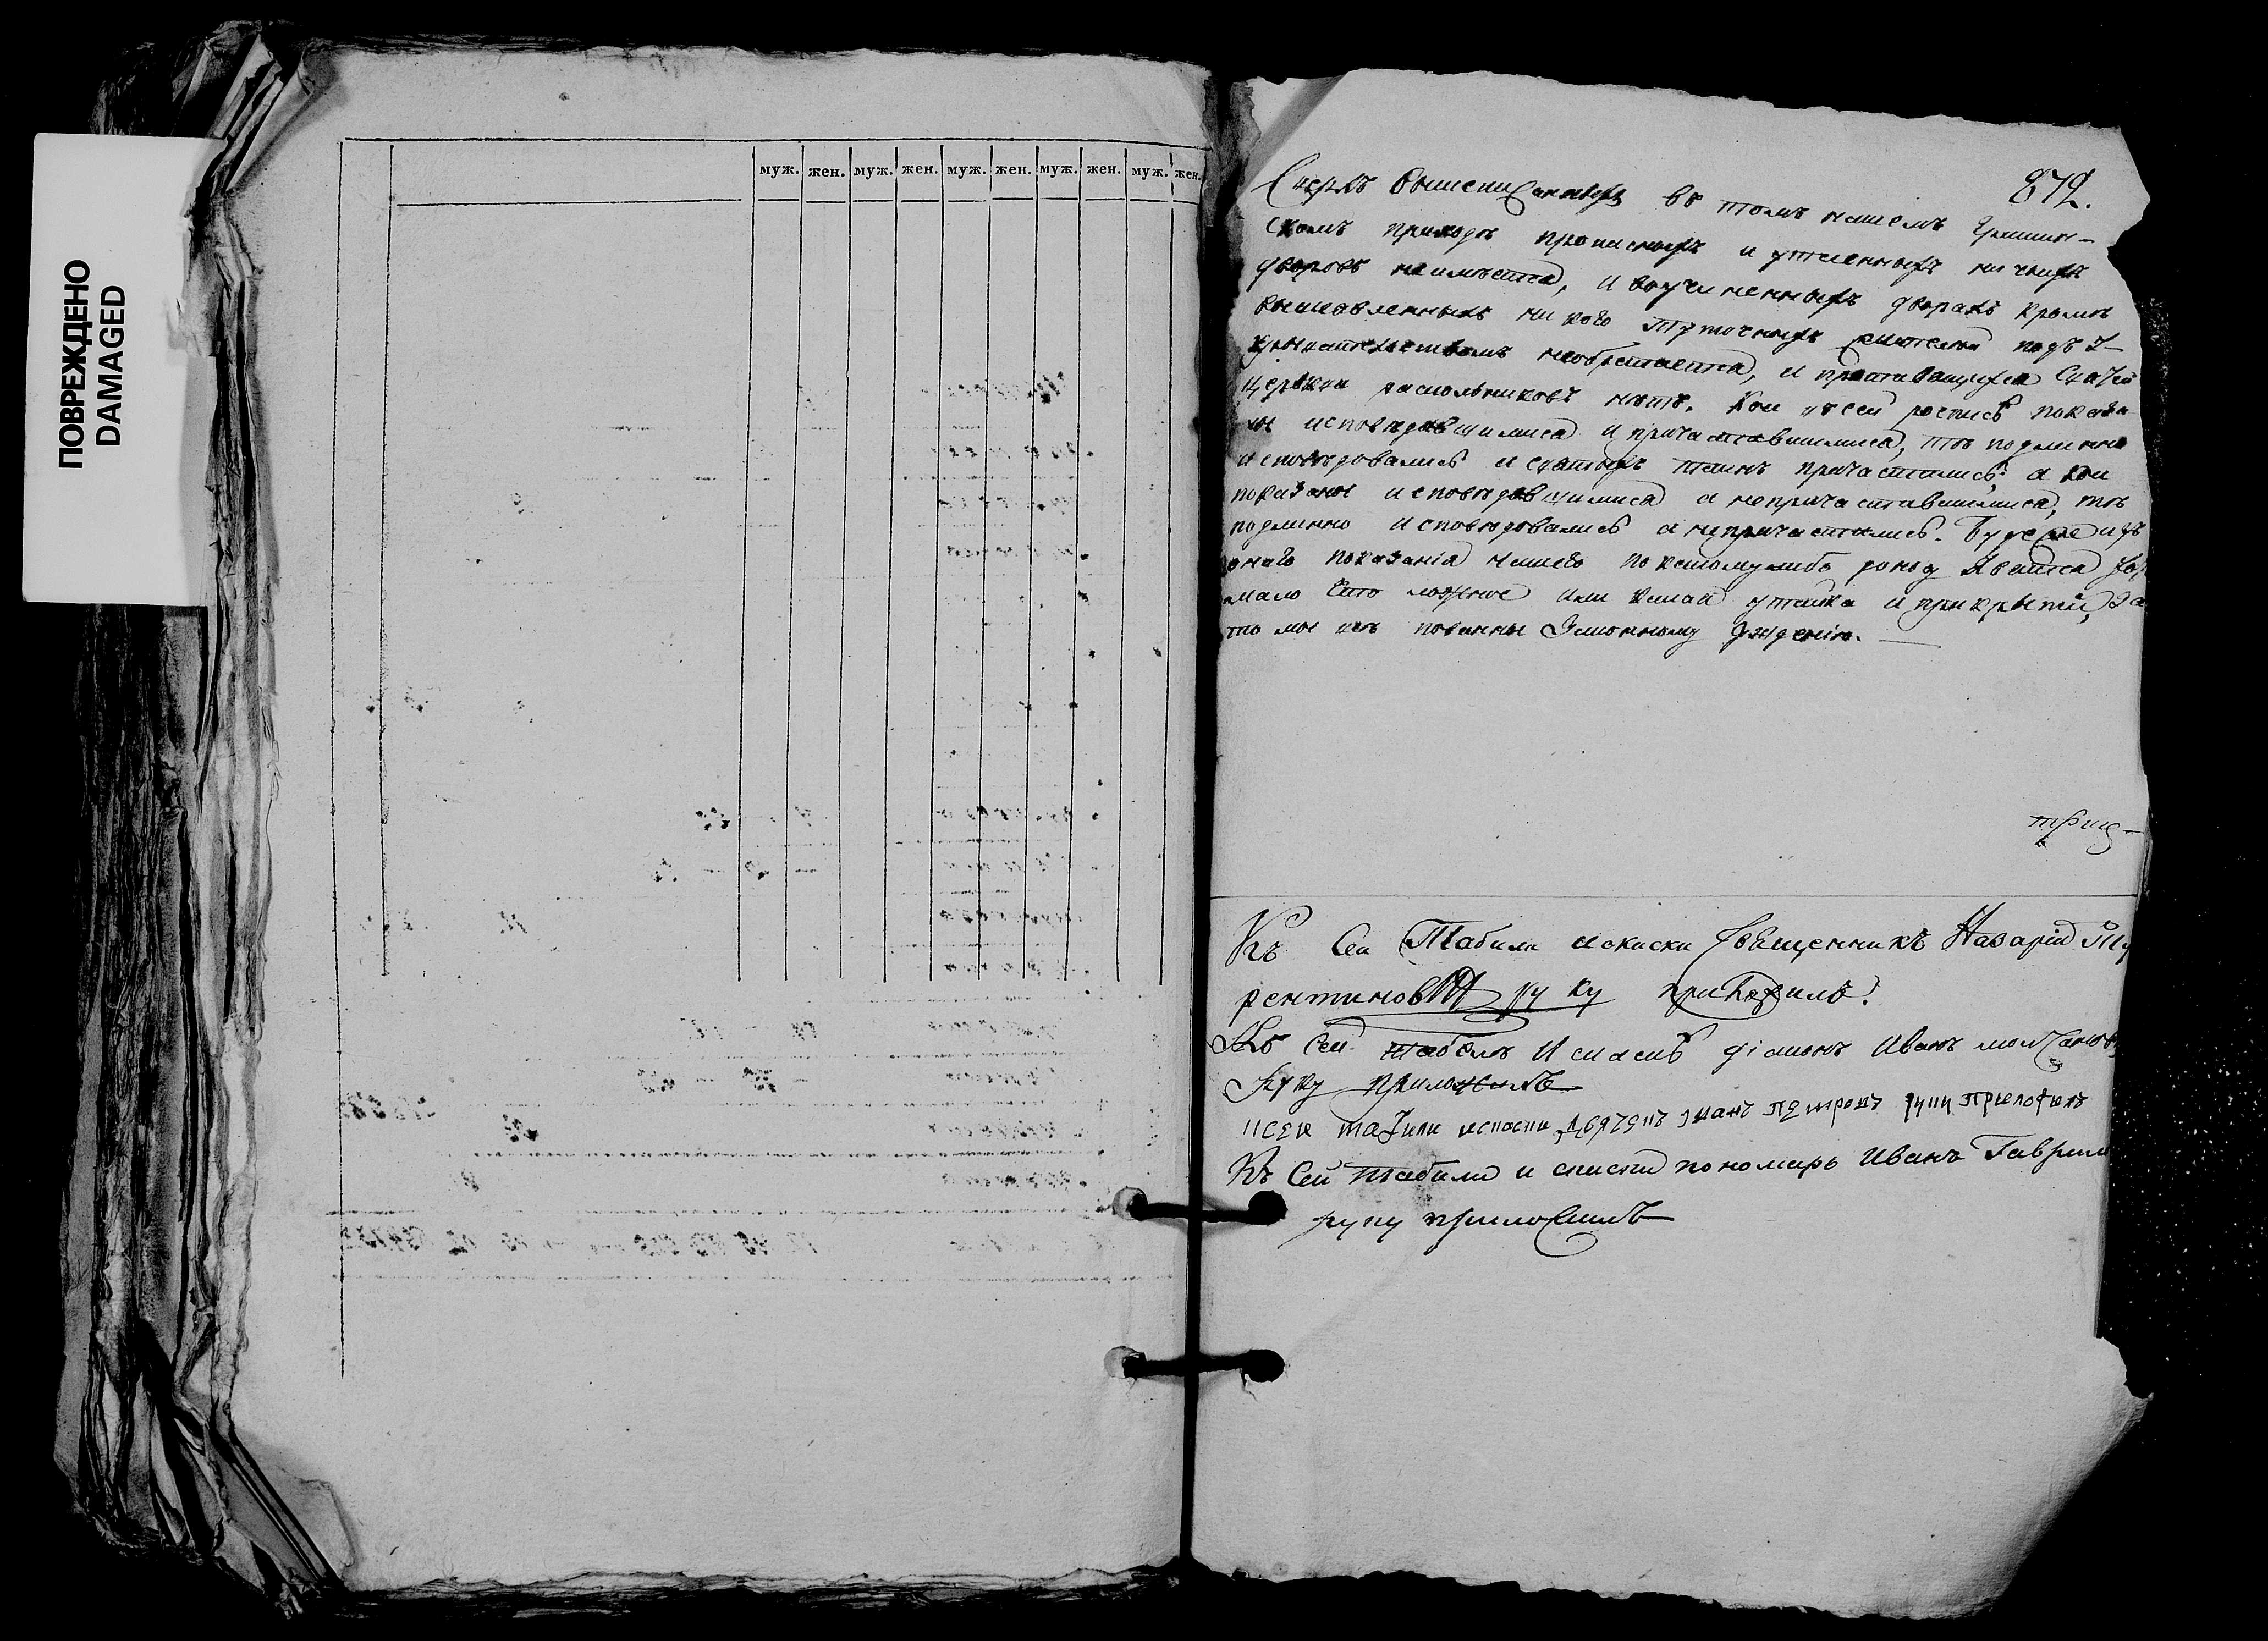 ПОВРЕЖДЕНО
DAMAGED
муж. жен. муж. жен. муж. жен. муж. жен. муж. жен.
872.
Сверхъ вышеписанныхъ въ томъ нашемъ
скомъ приходѣ прописныхъ и утаенныхъ ни чіихъ
дворовъ неимѣется, и воучиненныхъ дворахъ кромѣ
вышеявленныхъ ни кого тѵточныхъ жителей подъ
необретается, и святей
церькви раскольниковъ нѣтъ. Кои въ сей росписѣ показа
ны исповѣдавшимися и причаставшимися, тѣ подлинно
исповѣдовались и святыхъ таинъ причастились, а кои
показаны исповѣдавшимися а непричаставшимися, тѣ
подлинно исповѣдовались а непричастились. Буде же изъ
онаго показанія нашего покакомулибо доводу явится
мало что ложное или какая утайка и прикрытій, за
то мы всѣ повинны суждению.
Къ Сей Табили искаски священникъ Назарій
рентиновъ руку приложилъ
Къ сей табелѣ и сиаскѣ діаконъ Иванъ молчановъ
руку приложилъ
ксеи табили искаски дьячекъ иванъ петровъ руку приложилъ
Къ Сей табили и списки пономарь Иванъ Гаврило
руку приложилъ